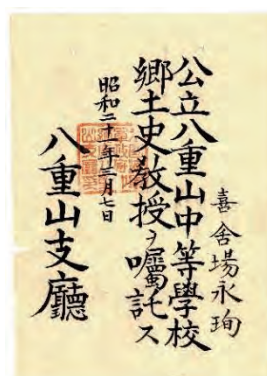 喜舍場永珣
公立八重山中等學校
郷土史教授ヲ囑託ス
昭和二十一年三月七日
八重山支廳